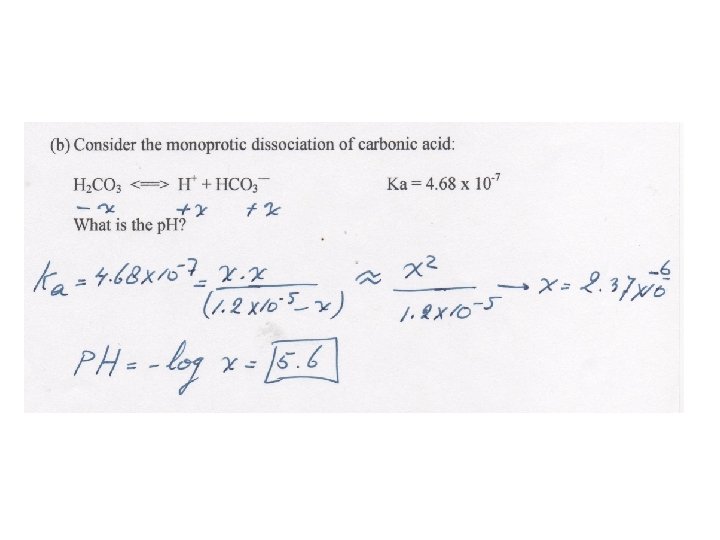 (b) Consider the monoprotic dissociation of carbonic acid:
H₂CO₃ <=> H⁺ + HCO₃⁻ Ka = 4.68 x 10⁻⁷
-x +x +x
What is the pH?
Ka = 4.68x10⁻⁷ = x·x / (1.2x10⁻⁵-x) ≈ x² / 1.2x10⁻⁵ → x = 2.37x10⁻⁶
PH = -log x = 5.6